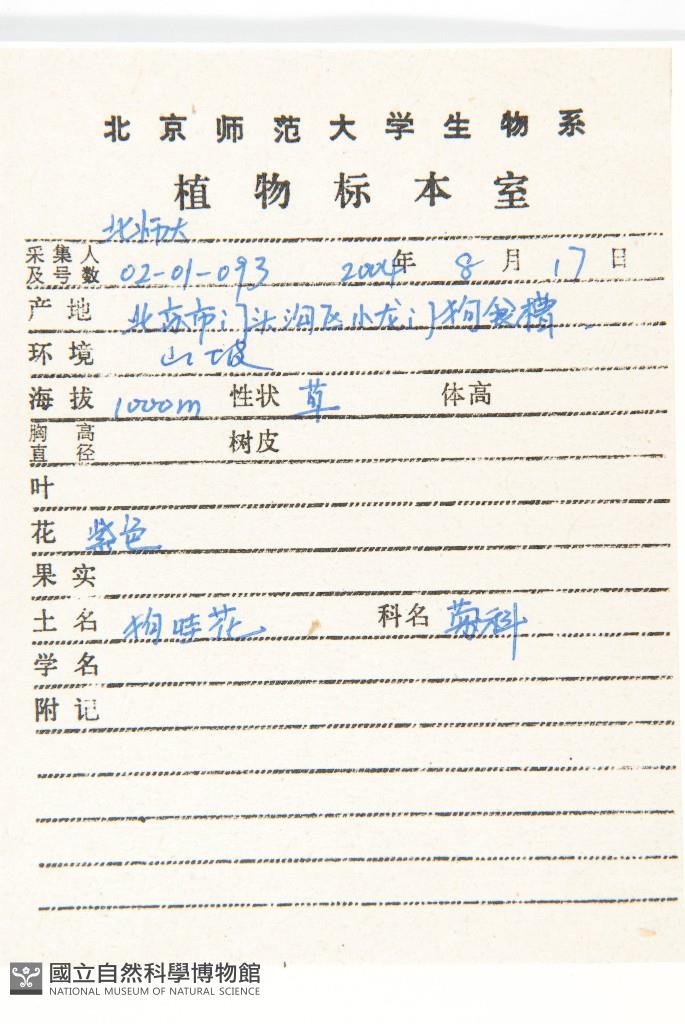 北京师范大学生物系
植物标本室
北师大
采集人及号数 02-01-093 2004年 8月 17日
产地 北京市门头沟区小龙门狗食槽
环境 山坡
海拔 1000m 性状 草 体高
胸高直径 树皮
叶
花 紫色
果实
土名 狗哇花 科名 菊科
学名
附记
國立自然科學博物館
NATIONAL MUSEUM OF NATURAL SCIENCE